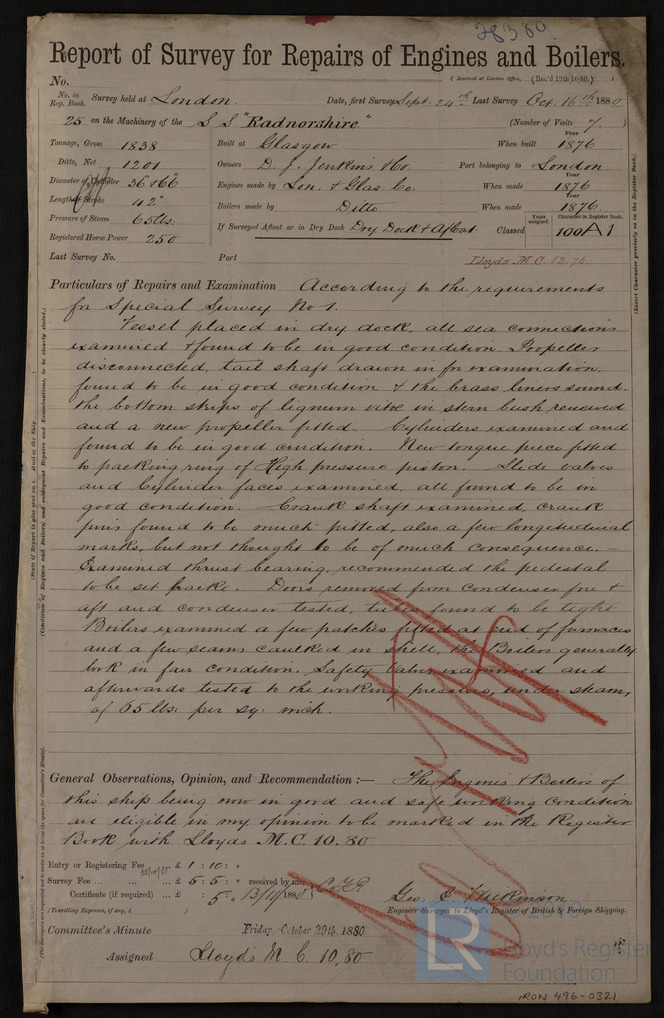 28389
Report of Survey for Repairs of Engines and Boilers.
No. (Received at London Office, (Rec'd 19th 10, 80.) )
No. in Reg. Book. Survey held at London. Date, first Survey Sept. 24th Last Survey Oct. 16th 1880
25 on the Machinery of the S S "Radnorshire" (Number of Visits 7.
Tonnage, Gross 1838
Ditto, Net 1201
Diameter of Cylinder 36" & 66"
Length of Stroke 42"
Pressure of Steam 65 lbs.
Registered Horse Power 250
Built at Glasgow When built Year 1876
Owners D. J. Jenkins & Co. Port belonging to London
Engines made by Lon. & Glas. Co. When made Year 1876
Boilers made by Ditto When made Year 1876
If Surveyed Afloat or in Dry Dock Dry Dock & Afloat Classed Years assigned. Character in Register Book. 100 A 1
Last Survey No. Port Lloyds M.C. 12.76.
Particulars of Repairs and Examination According to the requirements
for Special Survey No 1.
Vessel placed in dry dock, all sea connections
examined & found to be in good condition. Propeller
disconnected, tail shaft drawn in for examination,
found to be in good condition & the brass liners sound.
the bottom strips of lignum vitae in stern bush renewed
and a new propeller fitted. Cylinders examined and
found to be in good condition. New tongue piece fitted
to packing ring of High pressure piston. Slide valves
and Cylinder faces examined, all found to be in
good condition. Crank shaft examined, crank
pins found to be much pitted, also a few longitudinal
marks, but not thought to be of much consequence.
Examined thrust bearing, recommended the pedestal
to be set back. Doors removed from condenser fore &
aft and condenser tested, tubes found to be tight
Boilers examined a few patches fitted at end of furnaces
and a few seams caulked in shell, the Boilers generally
look in fair condition. Safety Valves examined and
afterwards tested to the working pressure, under steam,
of 65 lbs. per sq. inch.
General Observations, Opinion, and Recommendation :— The Engines & Boilers of
this ship being now in good and safe working condition
are eligible in my opinion to be marked in the Register
Book with Lloyds M.C. 10.80
Entry or Registering Fee £ 1 : 10 :
Survey Fee ... £ 5 : 5 : received by me,
Certificate (if required) ... £ : 5 : 1880
(Travelling Expenses, if any, £ )
Geo. E. Hutkinson
Engineer Surveyor to Lloyd's Register of British & Foreign Shipping.
Committee's Minute Friday, October 29th, 1880
Assigned Lloyds M. C. 10,80
Lloyd's Register
Foundation
IRON 496-0321